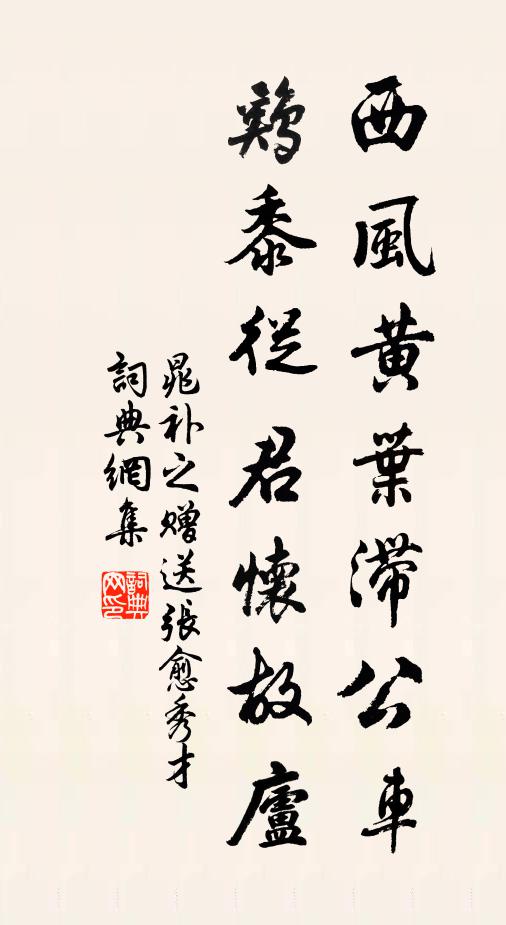 西風黃葉滯公車
鷄黍從君懷故廬
晁补之赠送張愈秀才
詞典網集
詞典网印